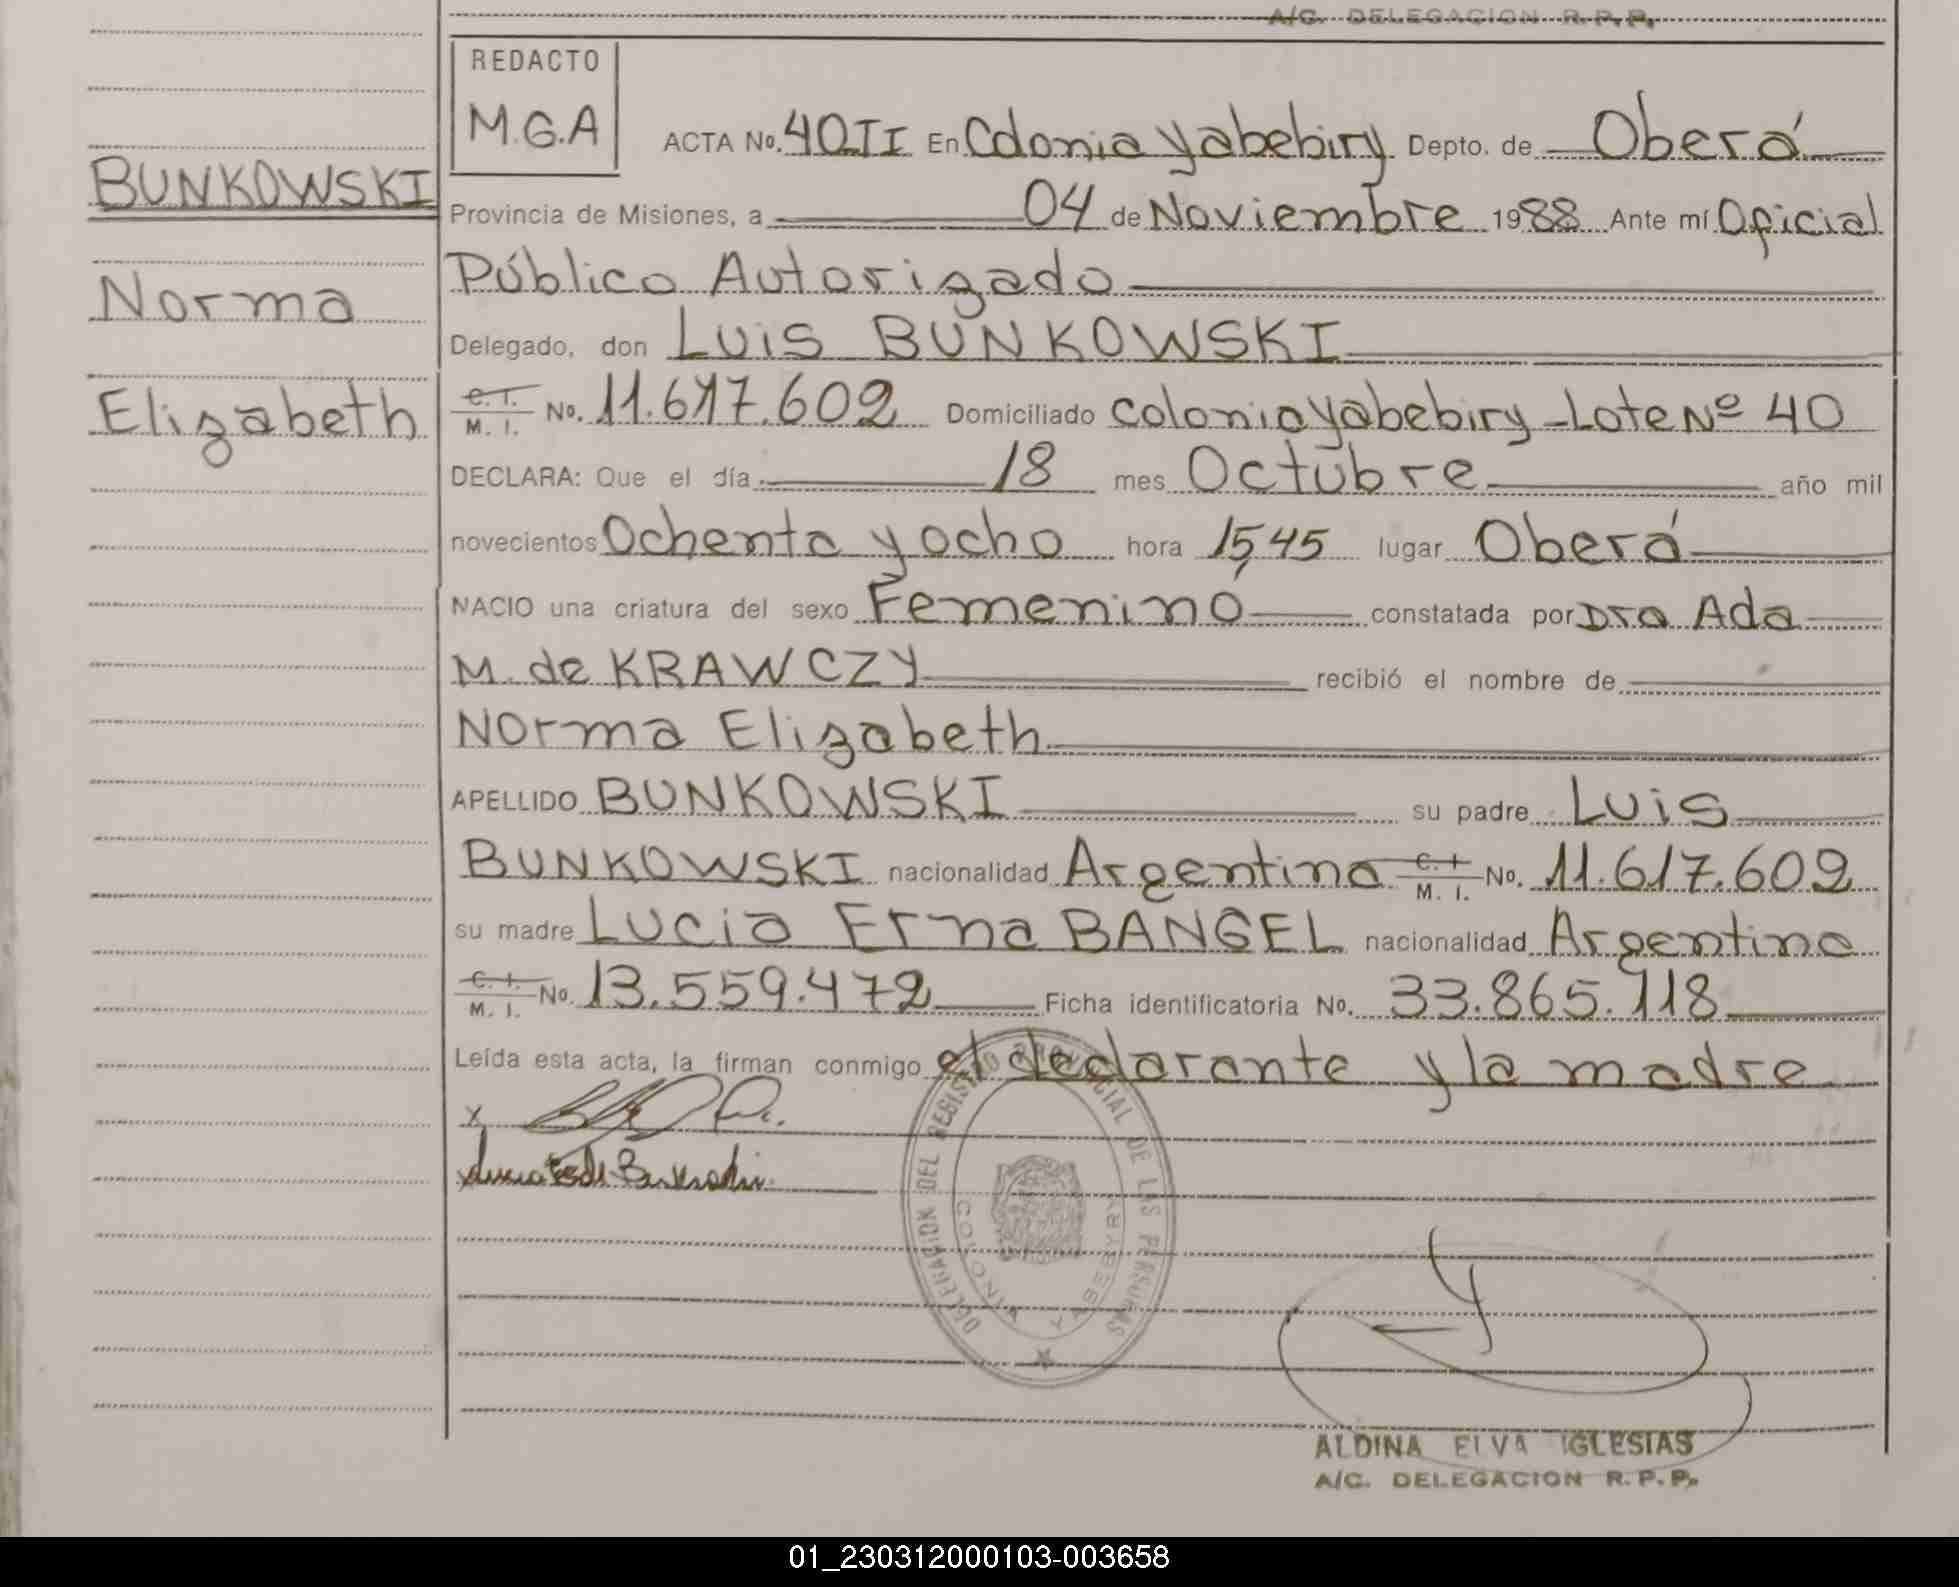 A/C. DELEGACION R.P.P.
REDACTO
M.G.A
ACTA No. 40 II En Colonia Yabebiry Depto. de Oberá
BUNKOWSKI
Provincia de Misiones, a 04 de Noviembre 1988 Ante mí Oficial
Público Autorizado
Norma
Delegado, don Luis BUNKOWSKI
Elizabeth
C.I. M. I. No. 11.617.602 Domiciliado colonia Yabebiry - Lote Nº 40
DECLARA: Que el día 18 mes Octubre año mil
novecientos Ochenta y ocho hora 15,45 lugar Oberá
NACIO una criatura del sexo Femenino constatada por Dra Ada
M. de KRAWCZY recibió el nombre de
Norma Elizabeth
APELLIDO BUNKOWSKI su padre Luis
BUNKOWSKI nacionalidad Argentina C.I. M. I. No. 11.617.602
su madre Lucia Erna BANGEL nacionalidad Argentina
C.I. M. I. No. 13.559.472 Ficha identificatoria No. 33.865.718
Leída esta acta, la firman conmigo el declarante y la madre
x
DELEGACION DEL REGISTRO PROVINCIAL DE LAS PERSONAS
COLONIA YABEBIRY
ALDINA ELVA IGLESIAS
A/C. DELEGACION R.P.P.
01_230312000103-003658